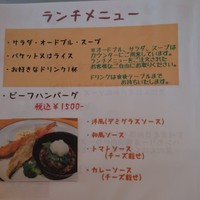 ランチメニュー
・サラダ・オードブル・スープ
・バケット又はライス
・お好きなドリンク1杯
※オードブル、サラダ、スープは
カウンターにご用意しています。
ドリンクは後程テーブルまで
お持ちいたします。
・ビーフハンバーグ
税込¥1500-
・洋風(デミグラスソース)
・和風ソース
・トマトソース
(チーズ載せ)
・カレーソース
(チーズ載せ)